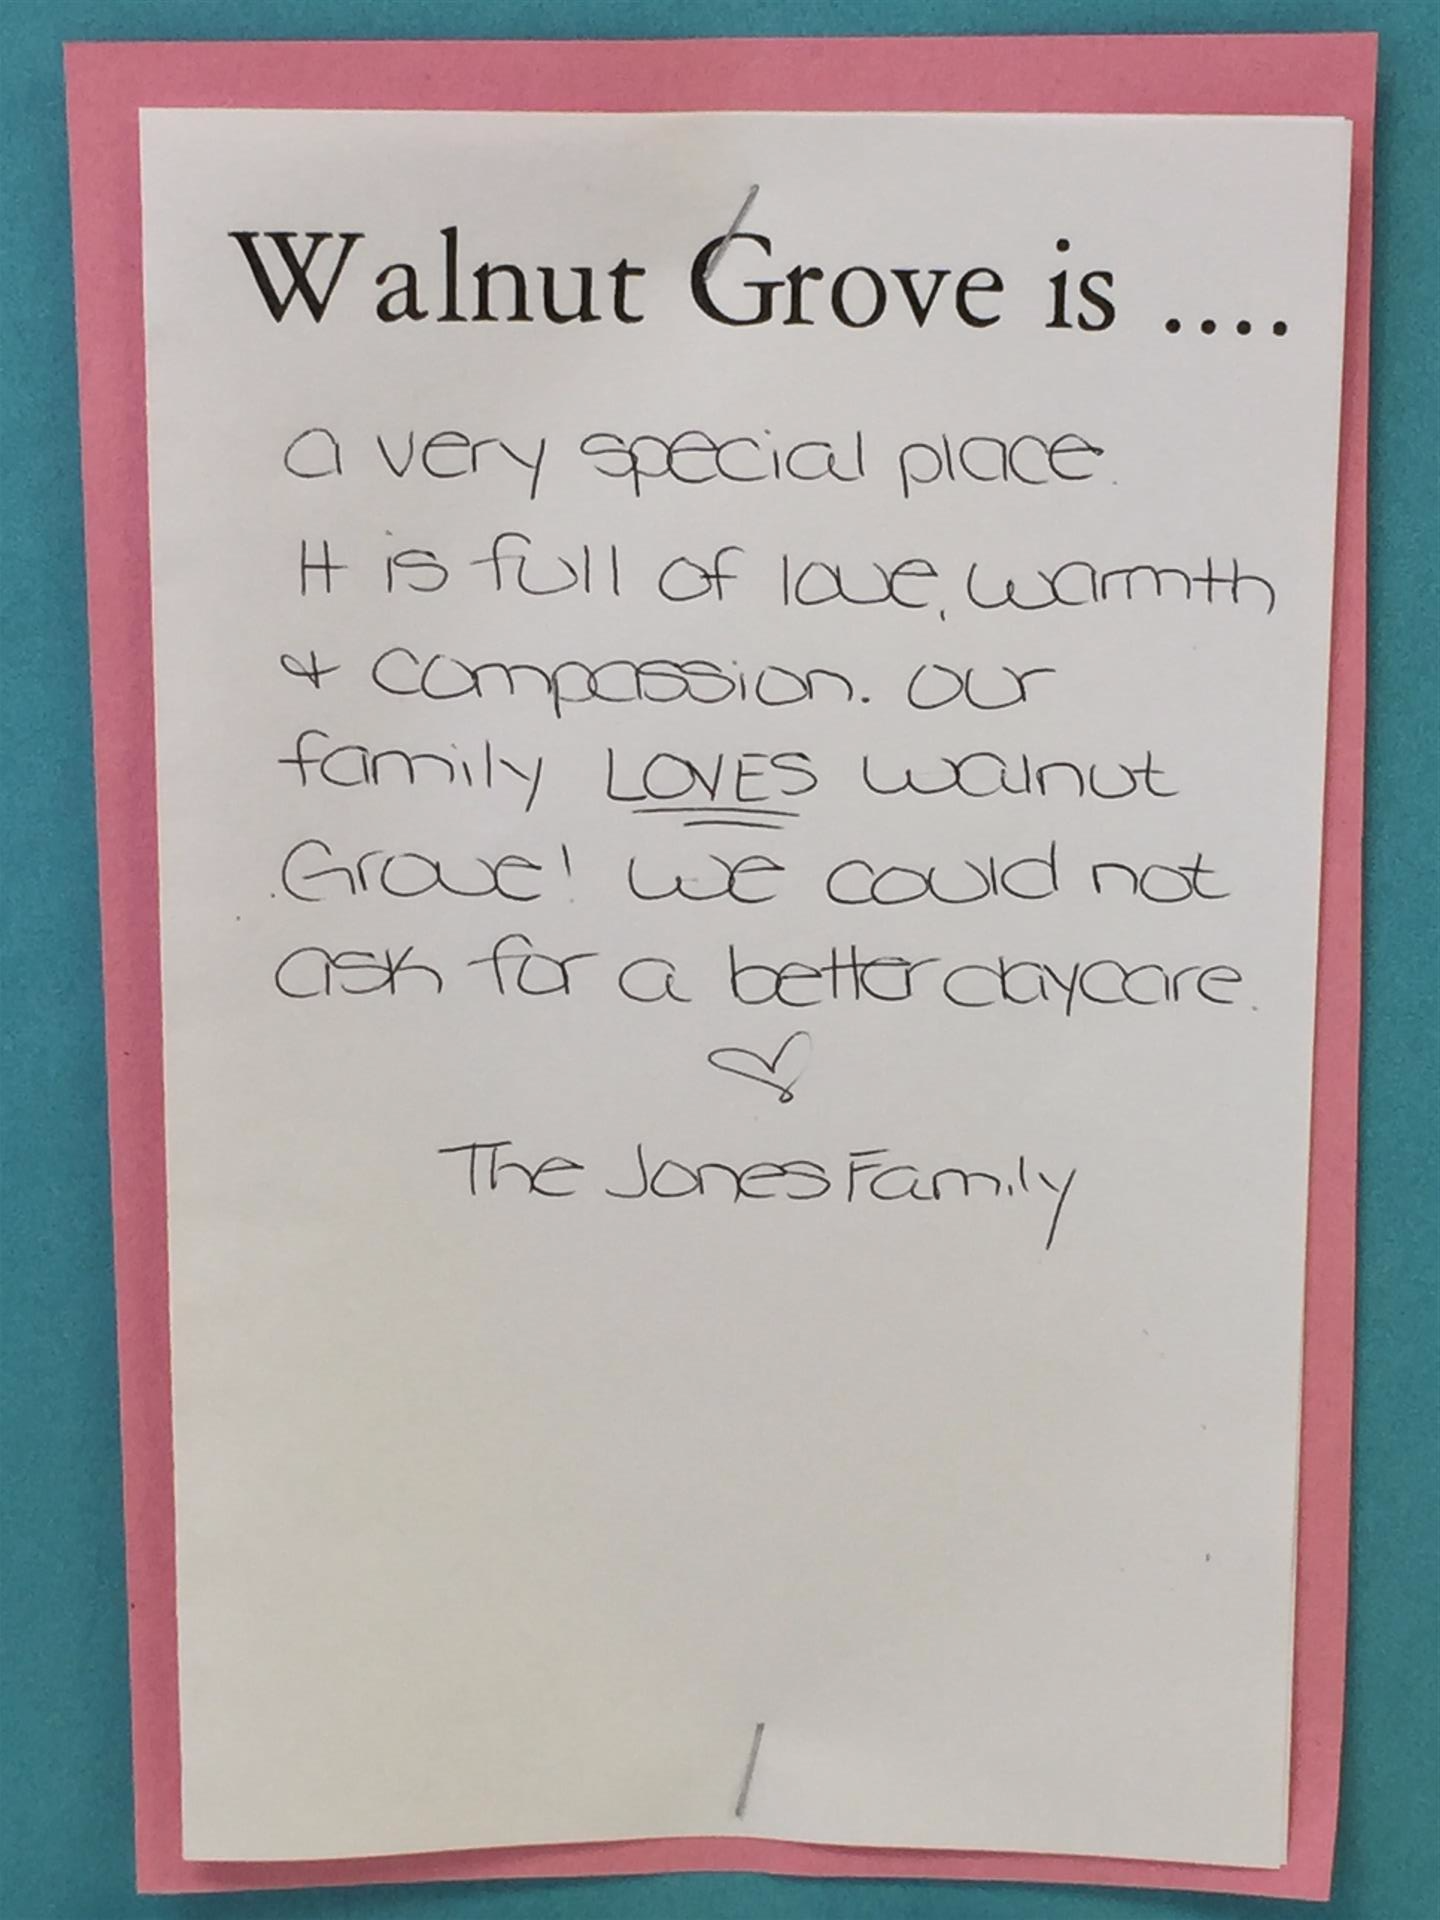 Walnut Grove is ....
a very special place.
It is full of love, warmth
& compassion. Our
family LOVES Walnut
Grove! We could not
ask for a better daycare.
♡
The Jones Family